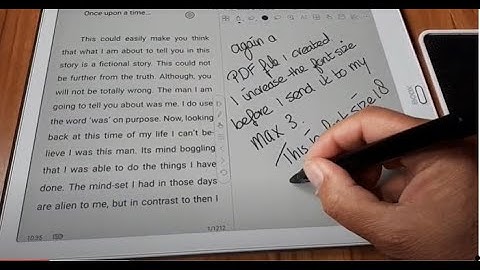 Once upon a time...
This could easily make you think
that what I am about to tell you in this
story is a fictional story. This could not
be further from the truth. Although, you
will not be totally wrong. The man I am
going to tell you about was me. I do use
the word 'was' on purpose. Now, looking
back at this time of my life I can't be-
lieve I was this man. Its mind boggling
that I was able to do the things I have
done. The mind-set I had in those days
are alien to me, but in contrast to then I
10:35
1/1212
again a
PDF file I created.
I increase the font size
before I send it to my
max 3.
This is font size 18